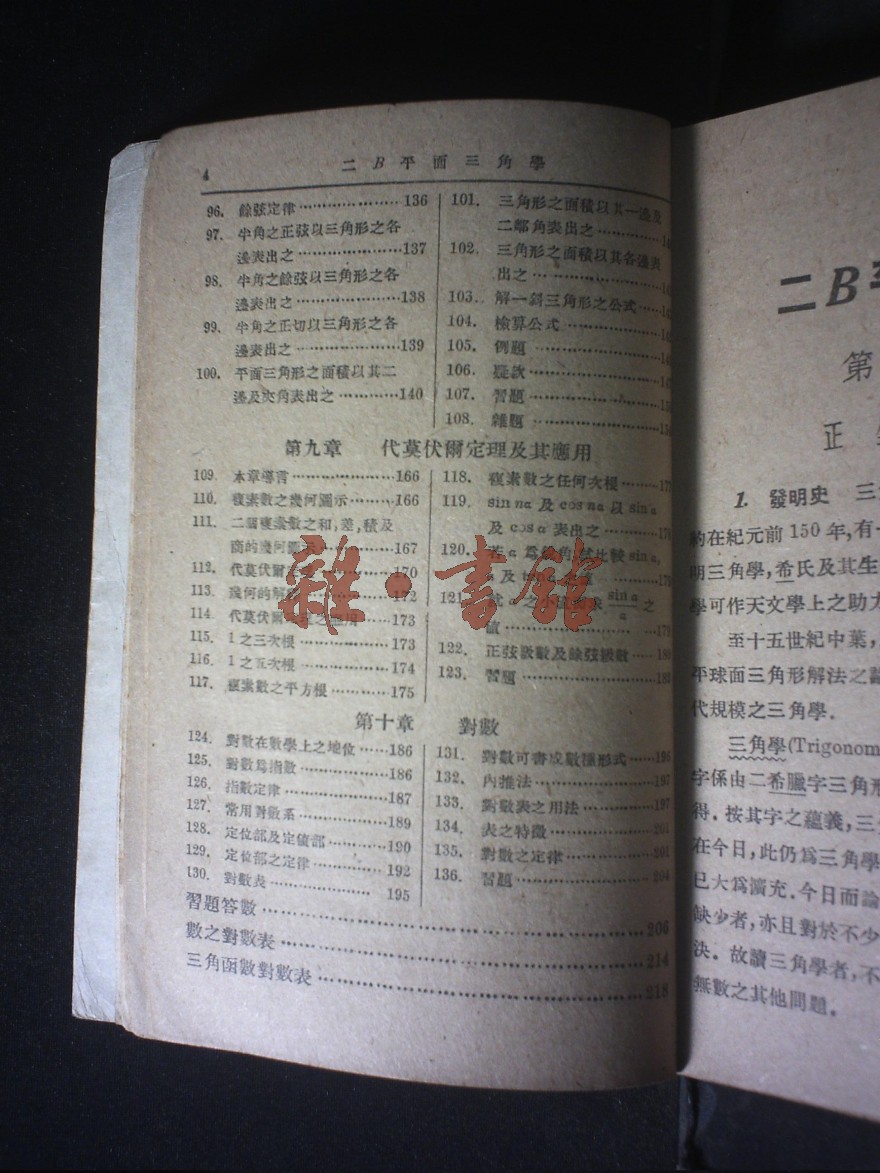 4
二 B 平 面 三 角 學
96. 餘弦定律 136
97. 半角之正弦以三角形之各
邊表出之 137
98. 半角之餘弦以三角形之各
邊表出之 138
99. 半角之正切以三角形之各
邊表出之 139
100. 平面三角形之面積以其二
邊及夾角表出之 140
101. 三角形之面積以其一邊及
二鄰角表出之
102. 三角形之面積以其各邊表
出之
103. 解一斜三角形之公式
104. 檢算公式
105. 例題
106. 疑款
107. 習題
108. 雜題
第九章 代莫伏爾定理及其應用
109. 本章導言 166
110. 複素數之幾何圖示 166
111. 二個複素數之和,差,積及
商的幾何圖示 167
112. 代莫伏爾 170
113. 幾何的解 172
114. 代莫伏爾 之應用 173
115. 1之三次根 173
116. 1之五次根 174
117. 複素數之平方根 175
118. 複素數之任何次根
119. sin nα 及 cos nα 以 sin α
及 cos α 表出之
120. 若 α 爲銳角,試比較 sin α,
α 及
121. sin α/α 之
值
122. 正弦級數及餘弦級數
123. 習題
第十章 對數
124. 對數在數學上之地位 186
125. 對數爲指數 186
126. 指數定律 187
127. 常用對數系 189
128. 定位部及定值部 190
129. 定位部之定律 192
130. 對數表 195
131. 對數可書成數種形式 196
132. 內推法 197
133. 對數表之用法 197
134. 表之特徵 201
135. 對數之定律 201
136. 習題 204
習題答數 206
數之對數表 214
三角函數對數表 218
雜·書館
二 B
第
正
1. 發明史 三
約在紀元前 150 年,有一
明三角學,希氏及其生
學可作天文學上之助力
至十五世紀中葉,
平球面三角形解法之論
代規模之三角學.
三角學(Trigonom
字係由二希臘字三角形
得.按其字之蘊義,三
在今日,此仍爲三角學
已大爲擴充.今日而論
缺少者,亦且對於不少
決.故讀三角學者,不
無數之其他問題.